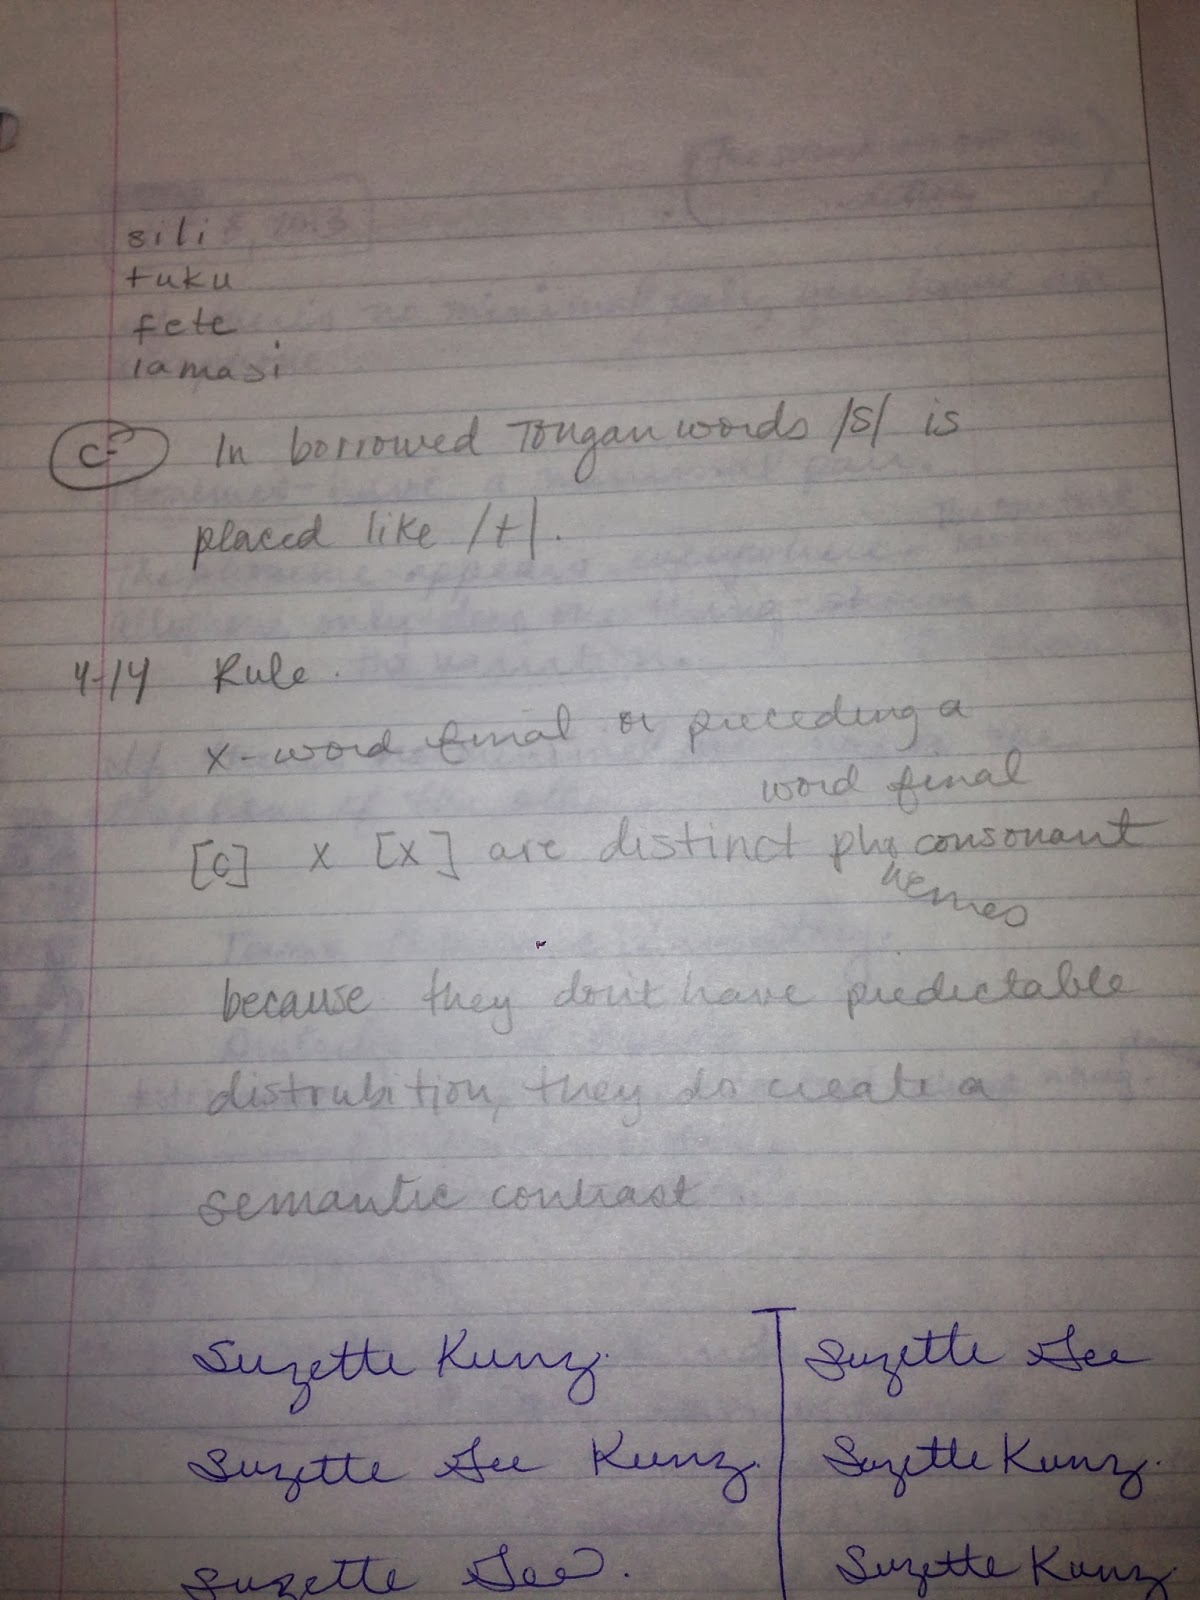 sili
tuku
fete
lamasi
c- In borrowed Tongan words /s/ is
placed like /t/.
4-14 Rule.
x-word final or preceding a
word final
[c] x [x] are distinct pho consonant
nemes
because they don't have predictable
distrubition, they do create a
semantic contrast
Suzette Kunz. Suzette Gee
Suzette Gee Kunz. Suzette Kunz.
Suzette Gee. Suzette Kunz